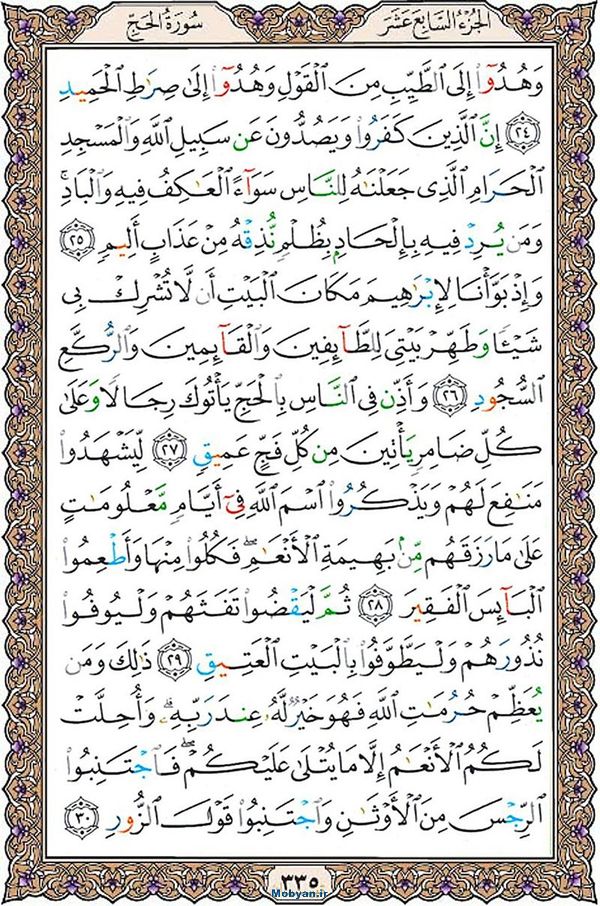 سُورَةُ الْحَجِّ
الجُزْءُ السَّابِعَ عَشَرَ
وَهُدُوٓا۟ إِلَى ٱلطَّيِّبِ مِنَ ٱلْقَوْلِ وَهُدُوٓا۟ إِلَىٰ صِرَٰطِ ٱلْحَمِيدِ
﴿٢٤﴾ إِنَّ ٱلَّذِينَ كَفَرُوا۟ وَيَصُدُّونَ عَن سَبِيلِ ٱللَّهِ وَٱلْمَسْجِدِ
ٱلْحَرَامِ ٱلَّذِى جَعَلْنَٰهُ لِلنَّاسِ سَوَآءً ٱلْعَٰكِفُ فِيهِ وَٱلْبَادِ ۚ
وَمَن يُرِدْ فِيهِ بِإِلْحَادٍۭ بِظُلْمٍ نُّذِقْهُ مِنْ عَذَابٍ أَلِيمٍ ﴿٢٥﴾
وَإِذْ بَوَّأْنَا لِإِبْرَٰهِيمَ مَكَانَ ٱلْبَيْتِ أَن لَّا تُشْرِكْ بِى
شَيْـًٔا وَطَهِّرْ بَيْتِىَ لِلطَّآئِفِينَ وَٱلْقَآئِمِينَ وَٱلرُّكَّعِ
ٱلسُّجُودِ ﴿٢٦﴾ وَأَذِّن فِى ٱلنَّاسِ بِٱلْحَجِّ يَأْتُوكَ رِجَالًا وَعَلَىٰ
كُلِّ ضَامِرٍ يَأْتِينَ مِن كُلِّ فَجٍّ عَمِيقٍ ﴿٢٧﴾ لِّيَشْهَدُوا۟
مَنَٰفِعَ لَهُمْ وَيَذْكُرُوا۟ ٱسْمَ ٱللَّهِ فِىٓ أَيَّامٍ مَّعْلُومَٰتٍ
عَلَىٰ مَا رَزَقَهُم مِّنۢ بَهِيمَةِ ٱلْأَنْعَٰمِ ۖ فَكُلُوا۟ مِنْهَا وَأَطْعِمُوا۟
ٱلْبَآئِسَ ٱلْفَقِيرَ ﴿٢٨﴾ ثُمَّ لْيَقْضُوا۟ تَفَثَهُمْ وَلْيُوفُوا۟
نُذُورَهُمْ وَلْيَطَّوَّفُوا۟ بِٱلْبَيْتِ ٱلْعَتِيقِ ﴿٢٩﴾ ذَٰلِكَ وَمَن
يُعَظِّمْ حُرُمَٰتِ ٱللَّهِ فَهُوَ خَيْرٌ لَّهُۥ عِندَ رَبِّهِۦ ۗ وَأُحِلَّتْ
لَكُمُ ٱلْأَنْعَٰمُ إِلَّا مَا يُتْلَىٰ عَلَيْكُمْ ۖ فَٱجْتَنِبُوا۟
ٱلرِّجْسَ مِنَ ٱلْأَوْثَٰنِ وَٱجْتَنِبُوا۟ قَوْلَ ٱلزُّورِ ﴿٣٠﴾
٣٣٥
Mobyan.ir